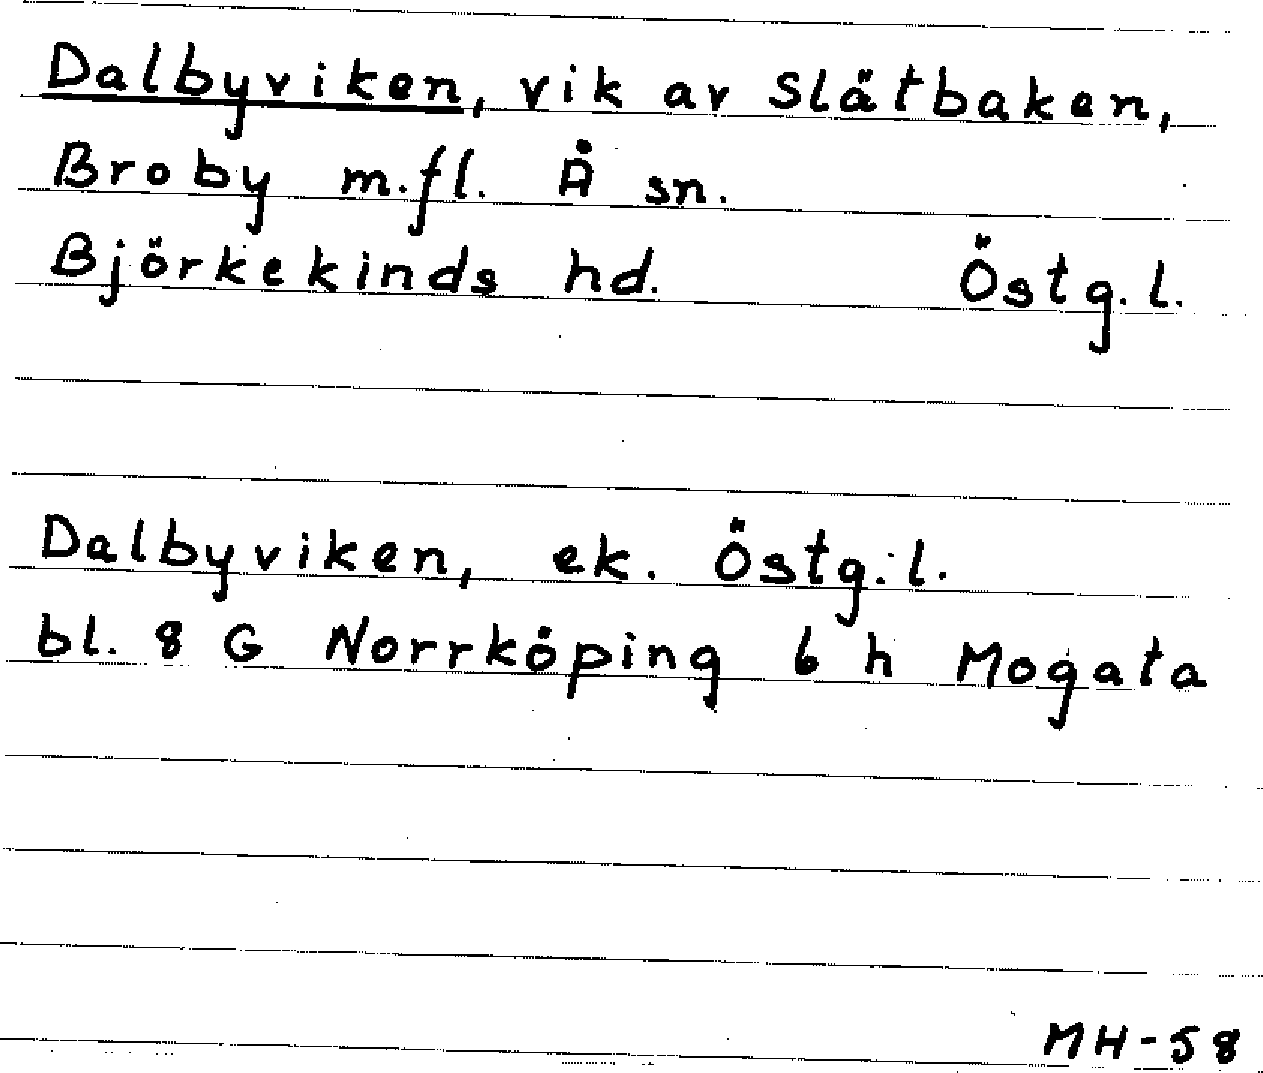 Dalbyviken, vik av Slätbaken,
Broby m.fl. Å sn.
Björkekinds hd. Östg.l.
Dalbyviken, ek. Östg.l.
bl. 8 G Norrköping 6 h Mogata
MH-58